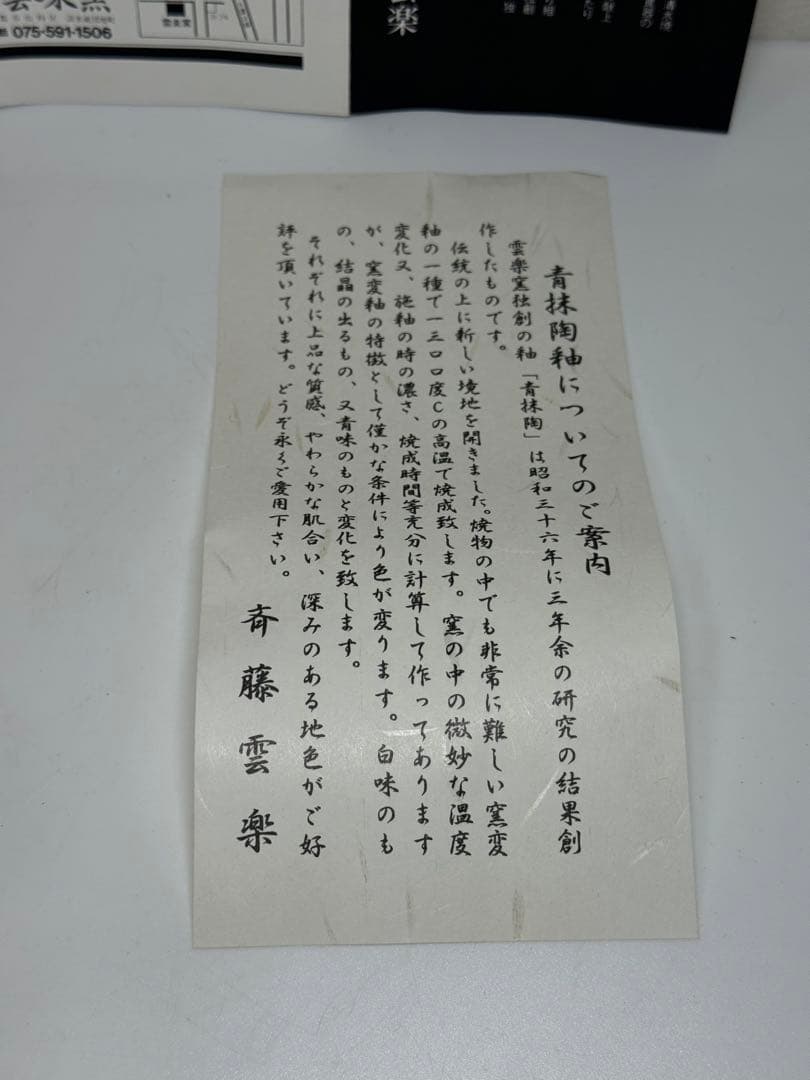 青抹陶釉についてのご案内
雲楽窯独創の釉「青抹陶」は昭和三十六年に三年余の研究の結果創
作したものです。
伝統の上に新しい境地を開きました。焼物の中でも非常に難しい窯変
釉の一種で一三〇〇度Cの高温で焼成致します。窯の中の微妙な温度
変化又、施釉の時の濃さ、焼成時間等充分に計算して作ってあります
が、窯変釉の特徴として僅かな条件により色が変ります。白味のも
の、結晶の出るもの、又青味のものと変化を致します。
それぞれに上品な質感、やわらかな肌合い、深みのある地色がご好
評を頂いています。どうぞ永くご愛用下さい。
斉藤雲楽
075-591-1506
雲楽窯
楽